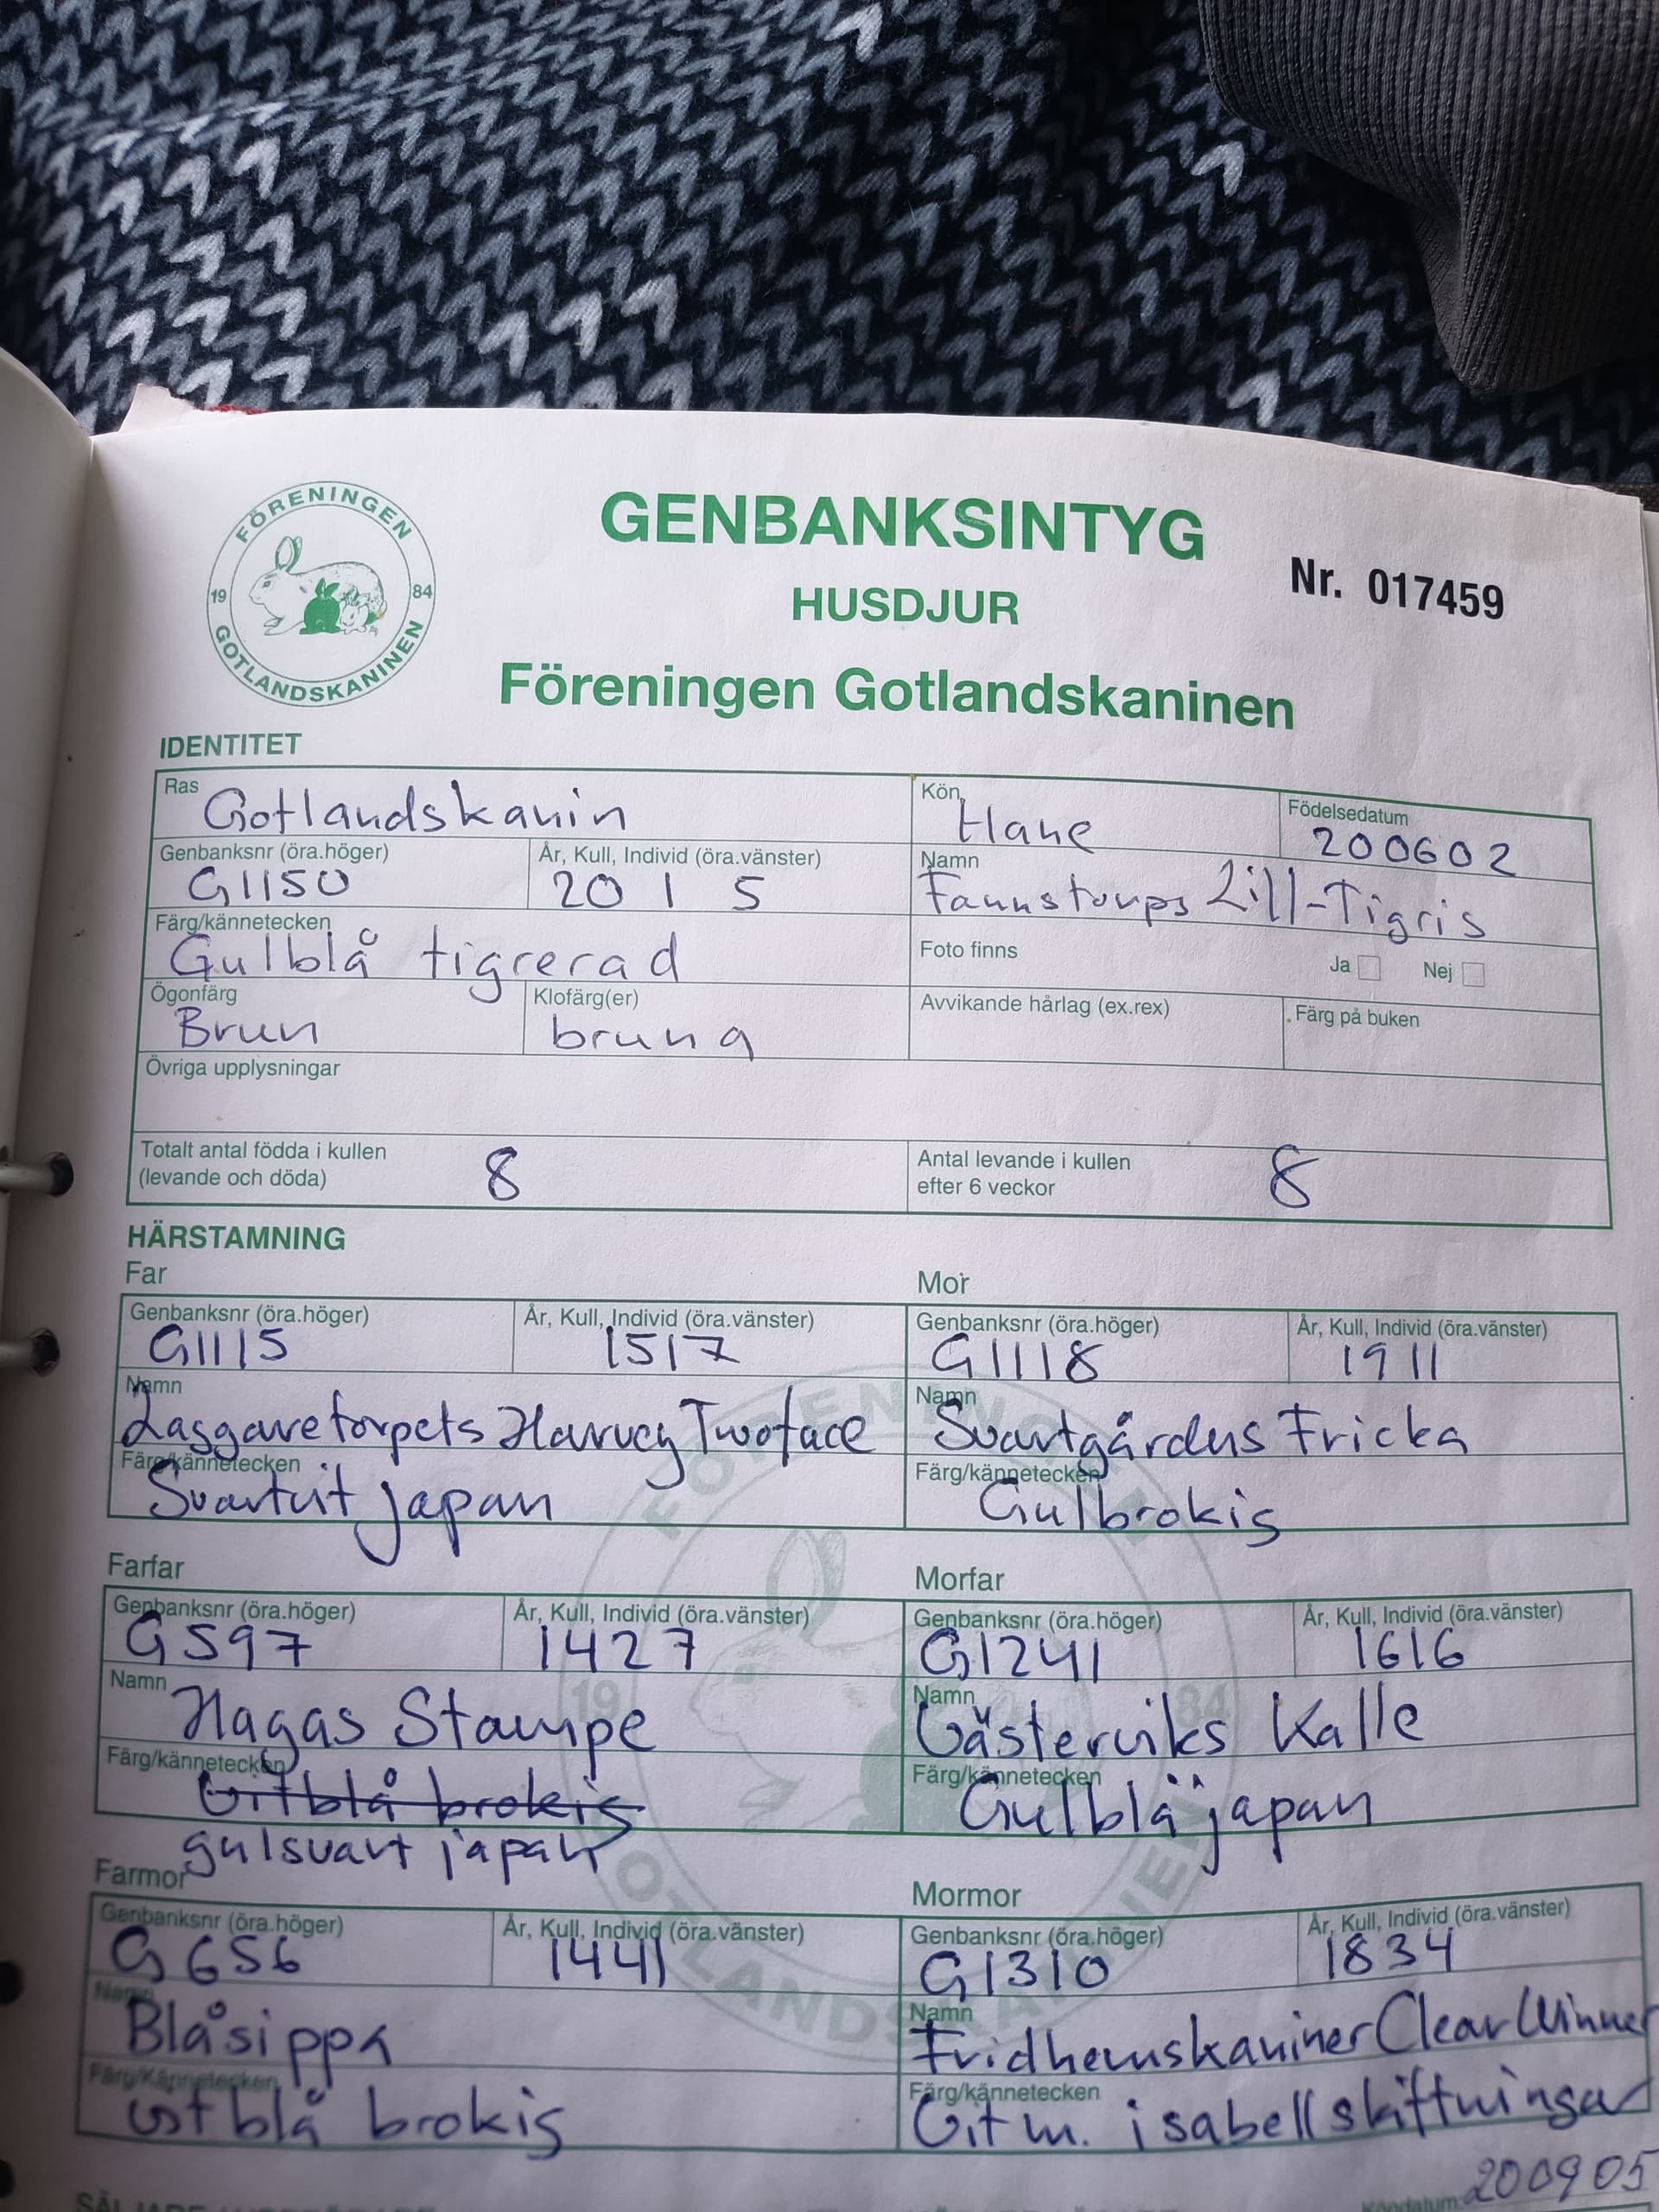 FÖRENINGEN
19 84
GOTLANDSKANINEN
GENBANKSINTYG
Nr. 017459
HUSDJUR
Föreningen Gotlandskaninen
IDENTITET
Ras Gotlandskanin
Kön Hane
Födelsedatum 200602
Genbanksnr (öra.höger) G1150
År, Kull, Individ (öra.vänster) 20 1 5
Namn Fannstorps Lill-Tigris
Färg/kännetecken Gulblå tigrerad
Foto finns Ja Nej
Ögonfärg Brun
Klofärg(er) bruna
Avvikande hårlag (ex.rex)
Färg på buken
Övriga upplysningar
Totalt antal födda i kullen
(levande och döda) 8
Antal levande i kullen
efter 6 veckor 8
HÄRSTAMNING
Far
Genbanksnr (öra.höger) G1115
År, Kull, Individ (öra.vänster) 1517
Namn Lasgaretorpets Harvey Twoface
Färg/kännetecken Svartvit japan
Mor
Genbanksnr (öra.höger) G1118
År, Kull, Individ (öra.vänster) 1911
Namn Svartgårdns Fricka
Färg/kännetecken Gulbrokig
Farfar
Genbanksnr (öra.höger) G597
År, Kull, Individ (öra.vänster) 1427
Namn Hagas Stampe
Färg/kännetecken Vitblå brokig
gulsvart japan
Morfar
Genbanksnr (öra.höger) G1241
År, Kull, Individ (öra.vänster) 1616
Namn Västerviks Kalle
Färg/kännetecken Gulblå japan
Farmor
Genbanksnr (öra.höger) G656
År, Kull, Individ (öra.vänster) 1441
Namn Blåsippa
Färg/Kännetecken blå brokig
Mormor
Genbanksnr (öra.höger) G1310
År, Kull, Individ (öra.vänster) 1834
Namn Fridhemskaniner Clear Winner
Färg/kännetecken Vit m. isabell skiftningar
200905